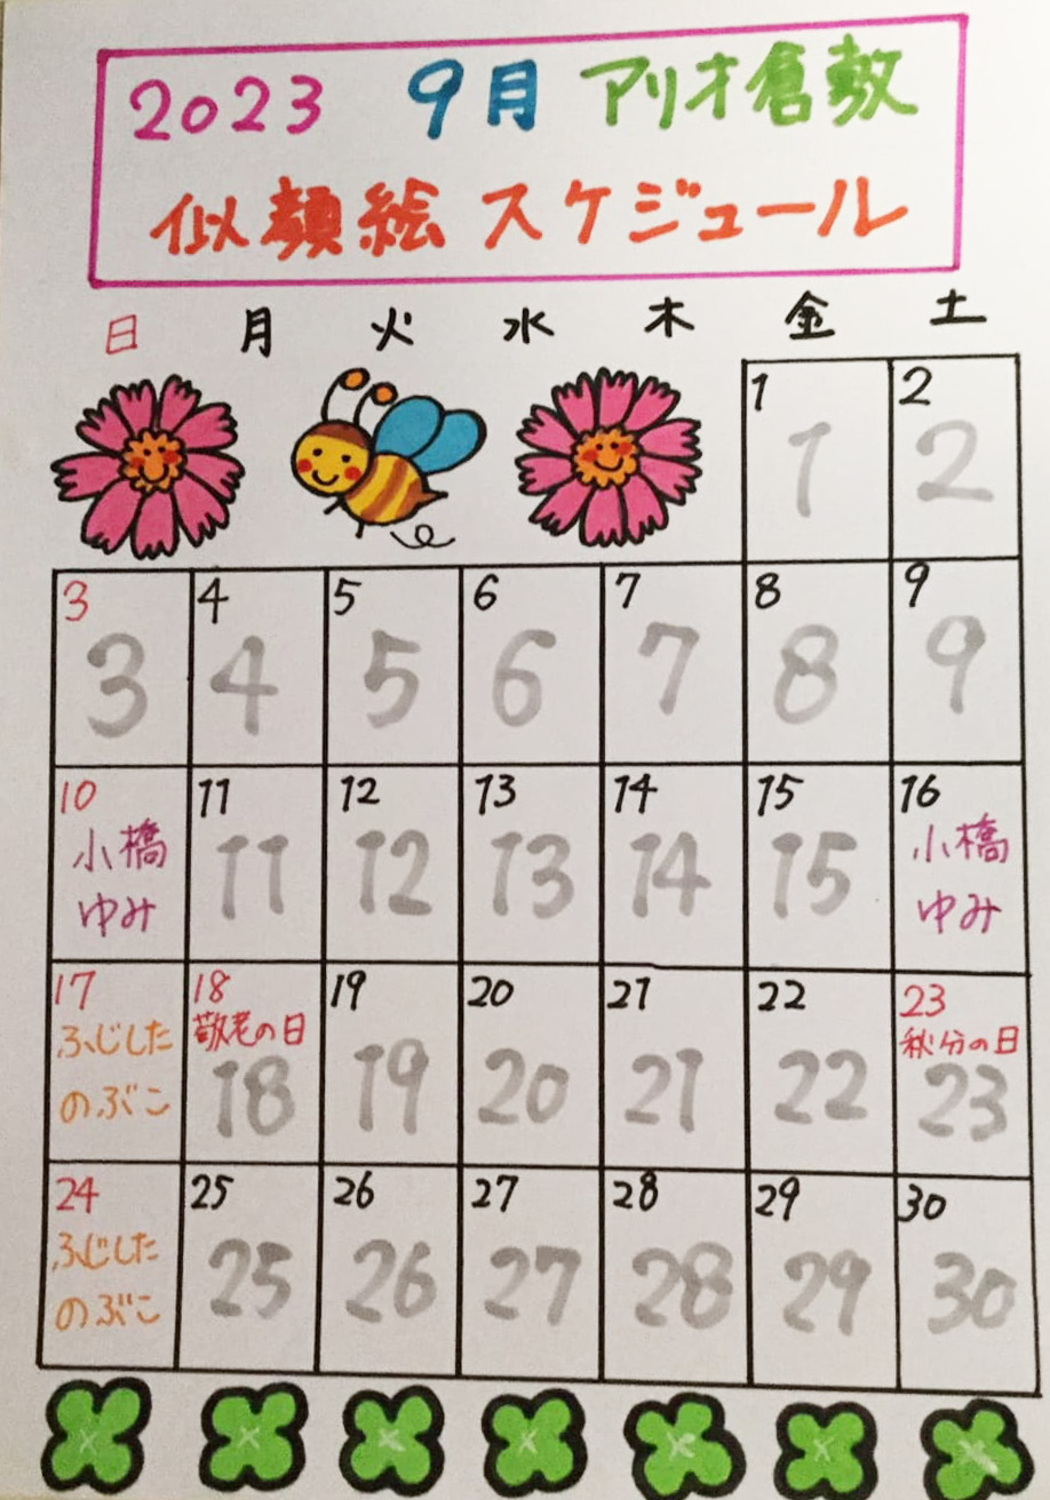 2023 9月 アリオ倉敷
似顔絵 スケジュール
日 月 火 水 木 金 土
1 2
1 2
3 4 5 6 7 8 9
3 4 5 6 7 8 9
10 11 12 13 14 15 16
小橋 11 12 13 14 15 小橋
ゆみ ゆみ
17 18 19 20 21 22 23
ふじした 敬老の日 秋分の日
のぶこ 18 19 20 21 22 23
24 25 26 27 28 29 30
ふじした 25 26 27 28 29 30
のぶこ